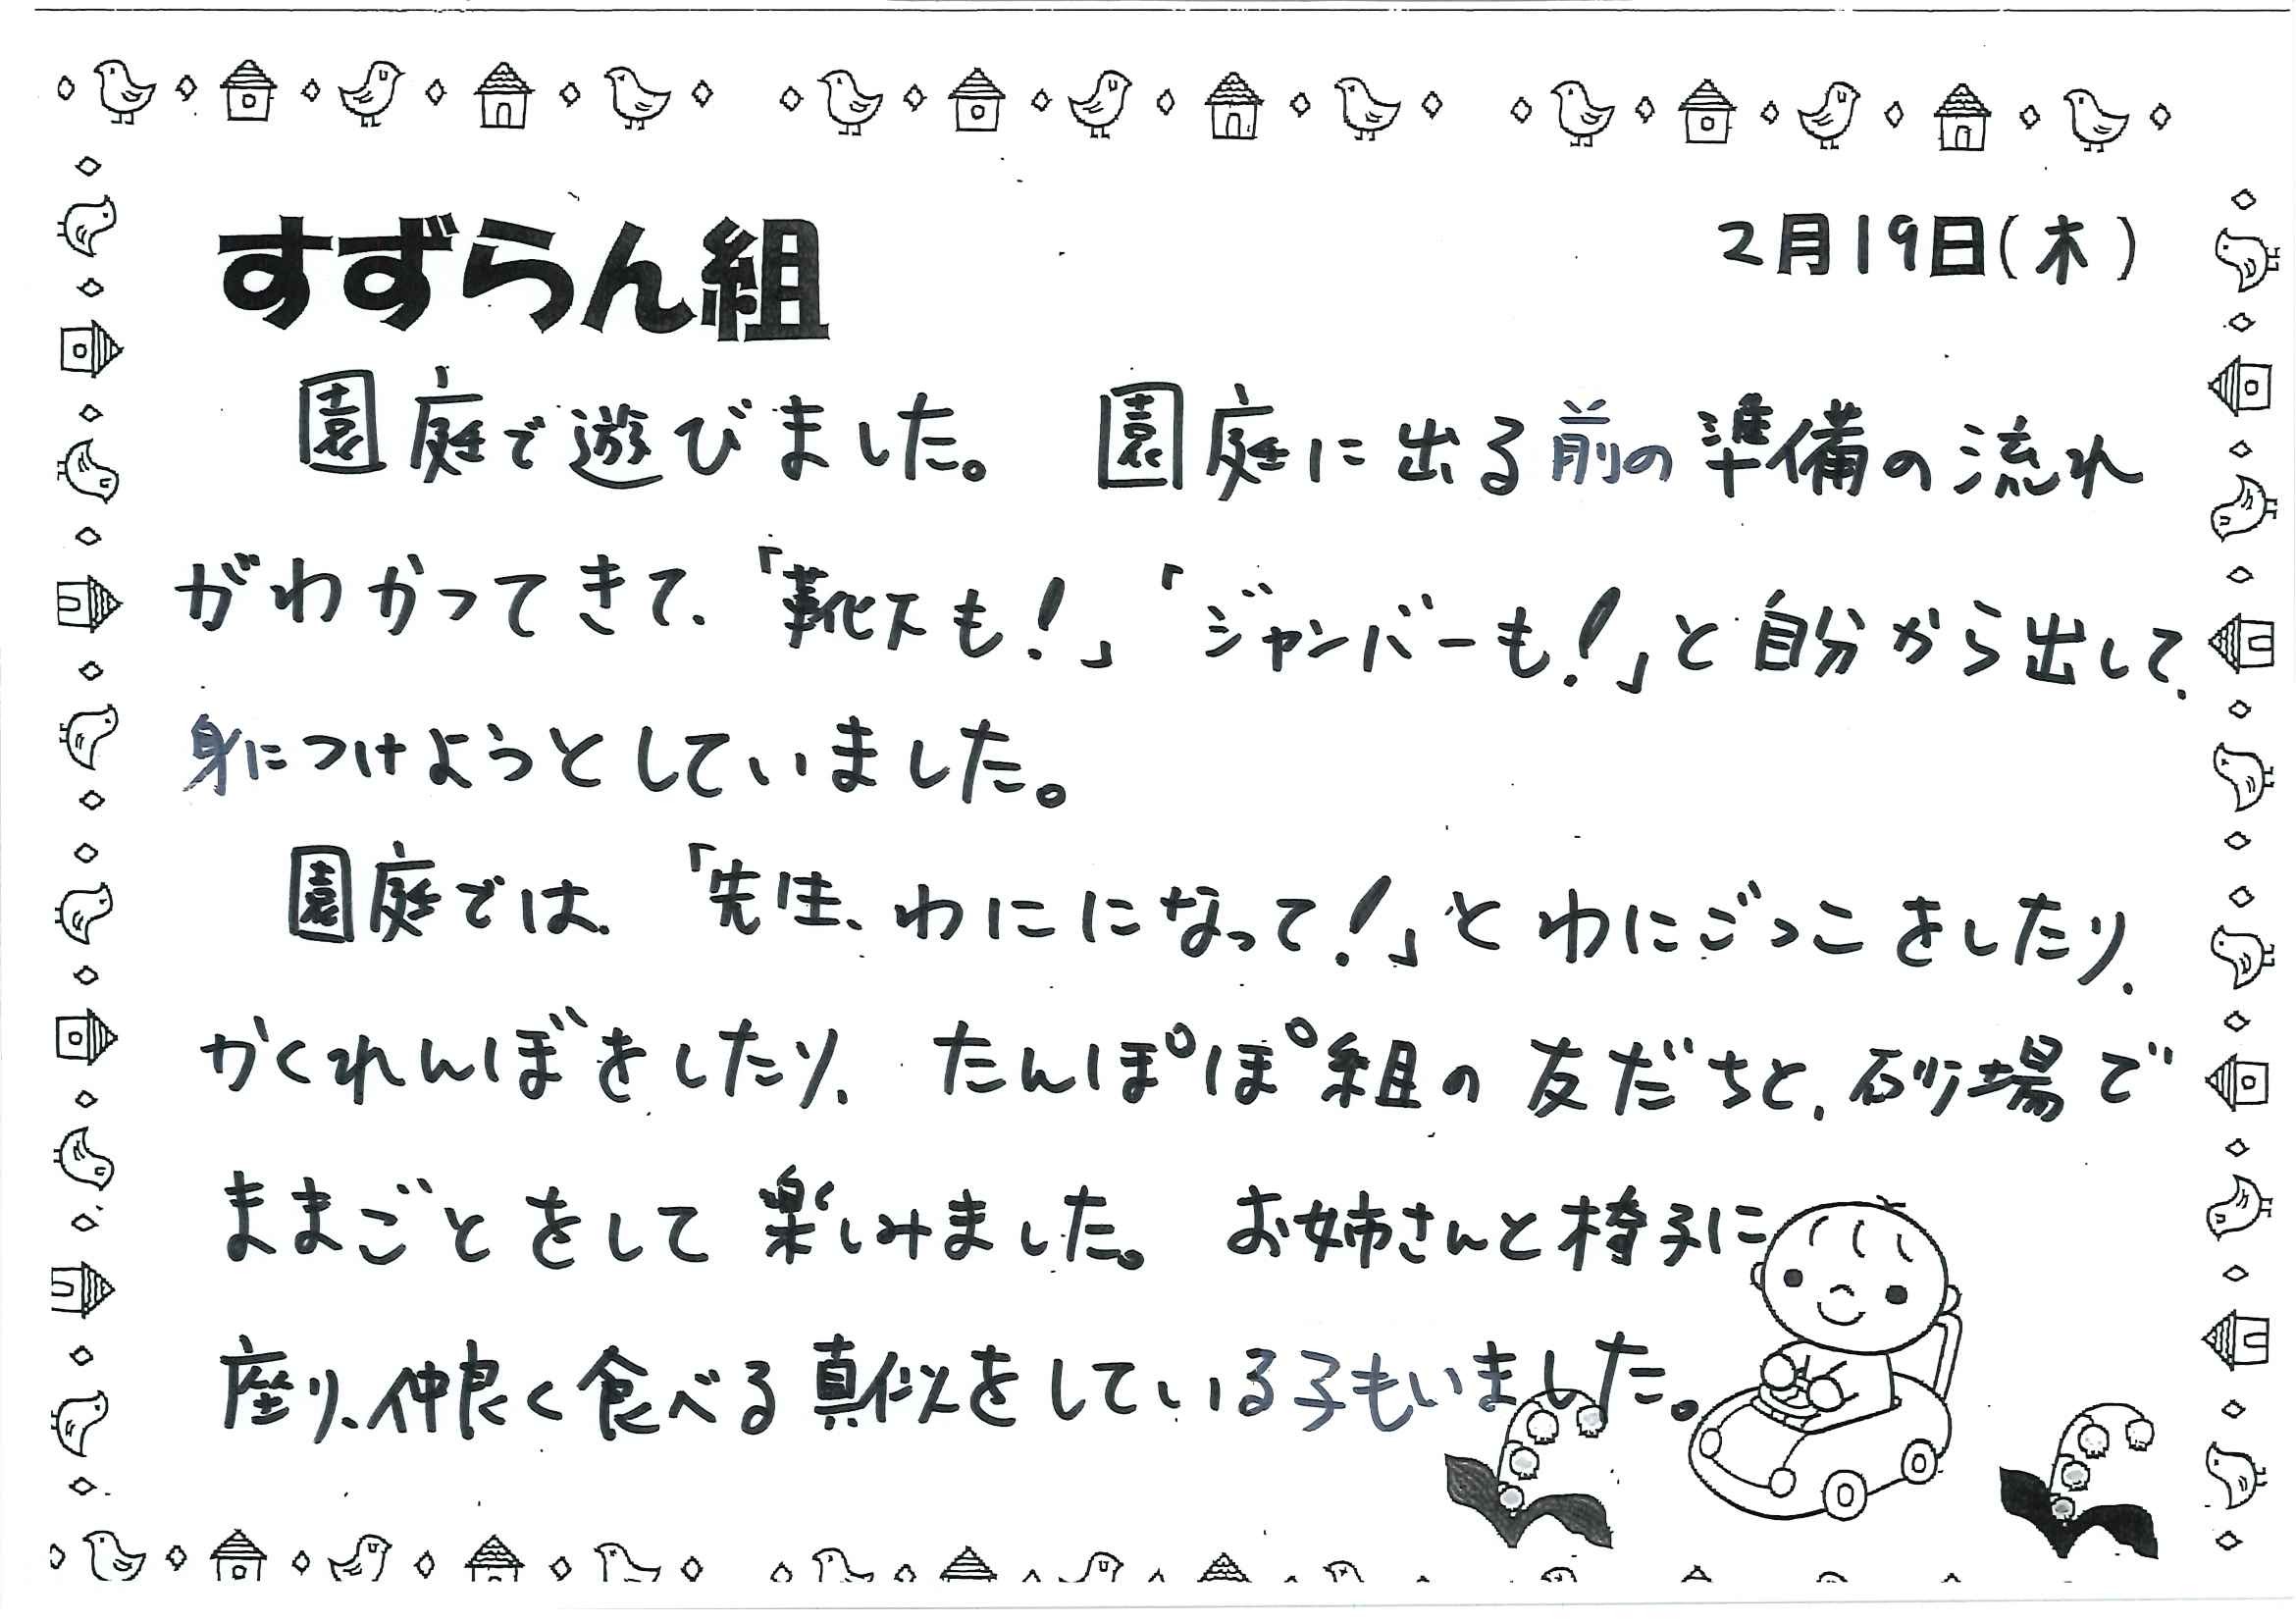 すずらん組
2月19日(木)
園庭で遊びました。 園庭に出る前の準備の流れ
がわかってきて、「靴下も!」「ジャンバーも!」と自分から出して、
身につけようとしていました。
園庭では、「先生、わにになって!」とわにごっこをしたり、
かくれんぼをしたり、たんぽぽ組の友だちと、砂場で
ままごとをして楽しみました。お姉さんと椅子に
座り、仲良く食べる真似をしている子もいました。